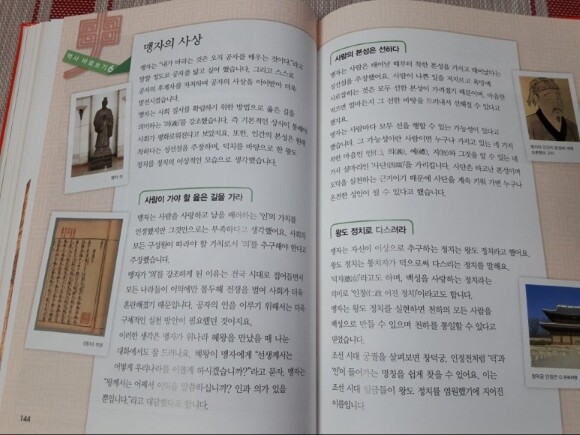 역사 바로보기 6
맹자의 사상
맹자는 "내가 바라는 것은 오직 공자를 배우는 것이다."라고
말할 정도로 공자를 닮고 싶어 했습니다. 그리고 스스로
공자의 후계자를 자처하며 공자의 사상을 이어받아 더욱
발전시켰습니다.
맹자는 사회 질서를 확립하기 위한 방법으로 옳은 길을
의미하는 '의(義)'를 강조했습니다. 즉 기본적인 상식이 통해야
사회가 평화로워진다고 보았지요. 또한, 인간의 본성은 원래
착하다는 성선설을 주장하며, 덕치를 바탕으로 한 왕도
정치를 정치의 이상적인 모습으로 생각했습니다.
맹자 상
사람이 가야 할 옳은 길을 가라
맹자는 사람을 사랑하고 남을 배려하는 '인'의 가치를
인정했지만 그것만으로는 부족하다고 생각했어요. 사회의
모든 구성원이 따라야 할 가치로서 '의'를 추구해야 한다고
주장했습니다.
맹자가 '의'를 강조하게 된 이유는 전국 시대로 접어들면서
모든 나라들이 이익에만 몰두해 전쟁을 벌여 사회가 더욱
혼란해졌기 때문입니다. 공자의 인을 이루기 위해서는 더욱
구체적인 실천 방안이 필요했던 것이지요.
이러한 생각은 맹자가 위나라 혜왕을 만났을 때 나눈
대화에서도 잘 드러나요. 혜왕이 맹자에게 "선생께서는
어떻게 우리나라를 이롭게 하시겠습니까?"라고 묻자, 맹자는
"왕께서는 어째서 이익을 말씀하십니까? 인과 의가 있을
뿐입니다."라고 대답했다고 합니다.
《맹자》 책판
144
사람의 본성은 선하다
맹자는 사람은 태어날 때부터 착한 본성을 가지고 태어났다는
성선설을 주장했어요. 사람이 나쁜 짓을 저지르고 욕망에
사로잡히는 것은 모두 선한 본성이 가려졌기 때문이며, 마음만
먹으면 얼마든지 그 선한 바탕을 드러내서 선해질 수 있다고
했지요.
맹자는 사람마다 모두 선을 행할 수 있는 가능성이 있다고
했습니다. 그 가능성이란 사람이면 누구나 가지고 있는 네 가지
착한 마음인 인(仁), 의(義), 예(禮), 지(智)와 그것을 알 수 있는 네
가지 실마리인 '사단(四端)'을 가리킵니다. 사단은 하고난 본성이며
도덕을 실천하는 근거이기 때문에 사단을 계속 키워 가면 누구나
온전한 성인이 될 수 있다고 했습니다.
왕도 정치로 다스려라
맹자는 자신이 이상으로 추구하는 정치는 왕도 정치라고 했어요.
왕도 정치는 통치자가 덕으로써 다스리는 정치를 말해요.
덕치(德治)라고도 하며, 백성을 사랑하는 정치라는
의미로 '인정(仁政, 어진 정치)'이라고도 합니다.
맹자는 왕도 정치를 실현하면 천하의 모든 사람을
백성으로 만들 수 있으며 천하를 통일할 수 있다고
믿었습니다.
조선 시대 궁궐을 살펴보면 창덕궁, 인정전처럼 '덕'과
'인'이 들어가는 명칭을 쉽게 찾을 수 있어요. 이는
조선 시대 임금들이 왕도 정치를 염원했기에 지어진
이름입니다.
창덕궁 인정전